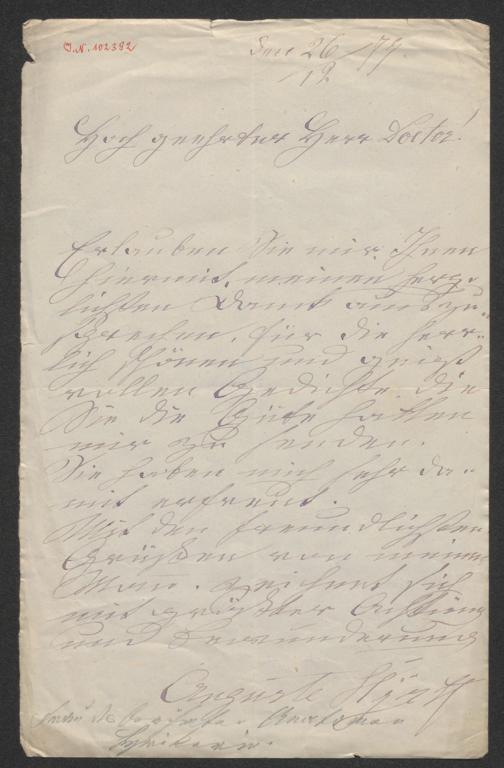 I.N. 102392
Den 26/12 77
Hoch geehrter Herr Doctor!
Erlauben Sie mir, Ihnen
hiermit, meinen herz-
lichsten Dank auszu-
sprechen, für die herr-
lich schönen und geist
vollen Gedichte, die
Sie die Güte hatten
mir zu senden.
Sie haben mich sehr da-
mit erfreut.
Mit den freundlichsten
Grüßen von meinem
Mann, zeichnet sich
mit größter Achtung
und Bewunderung
Auguste